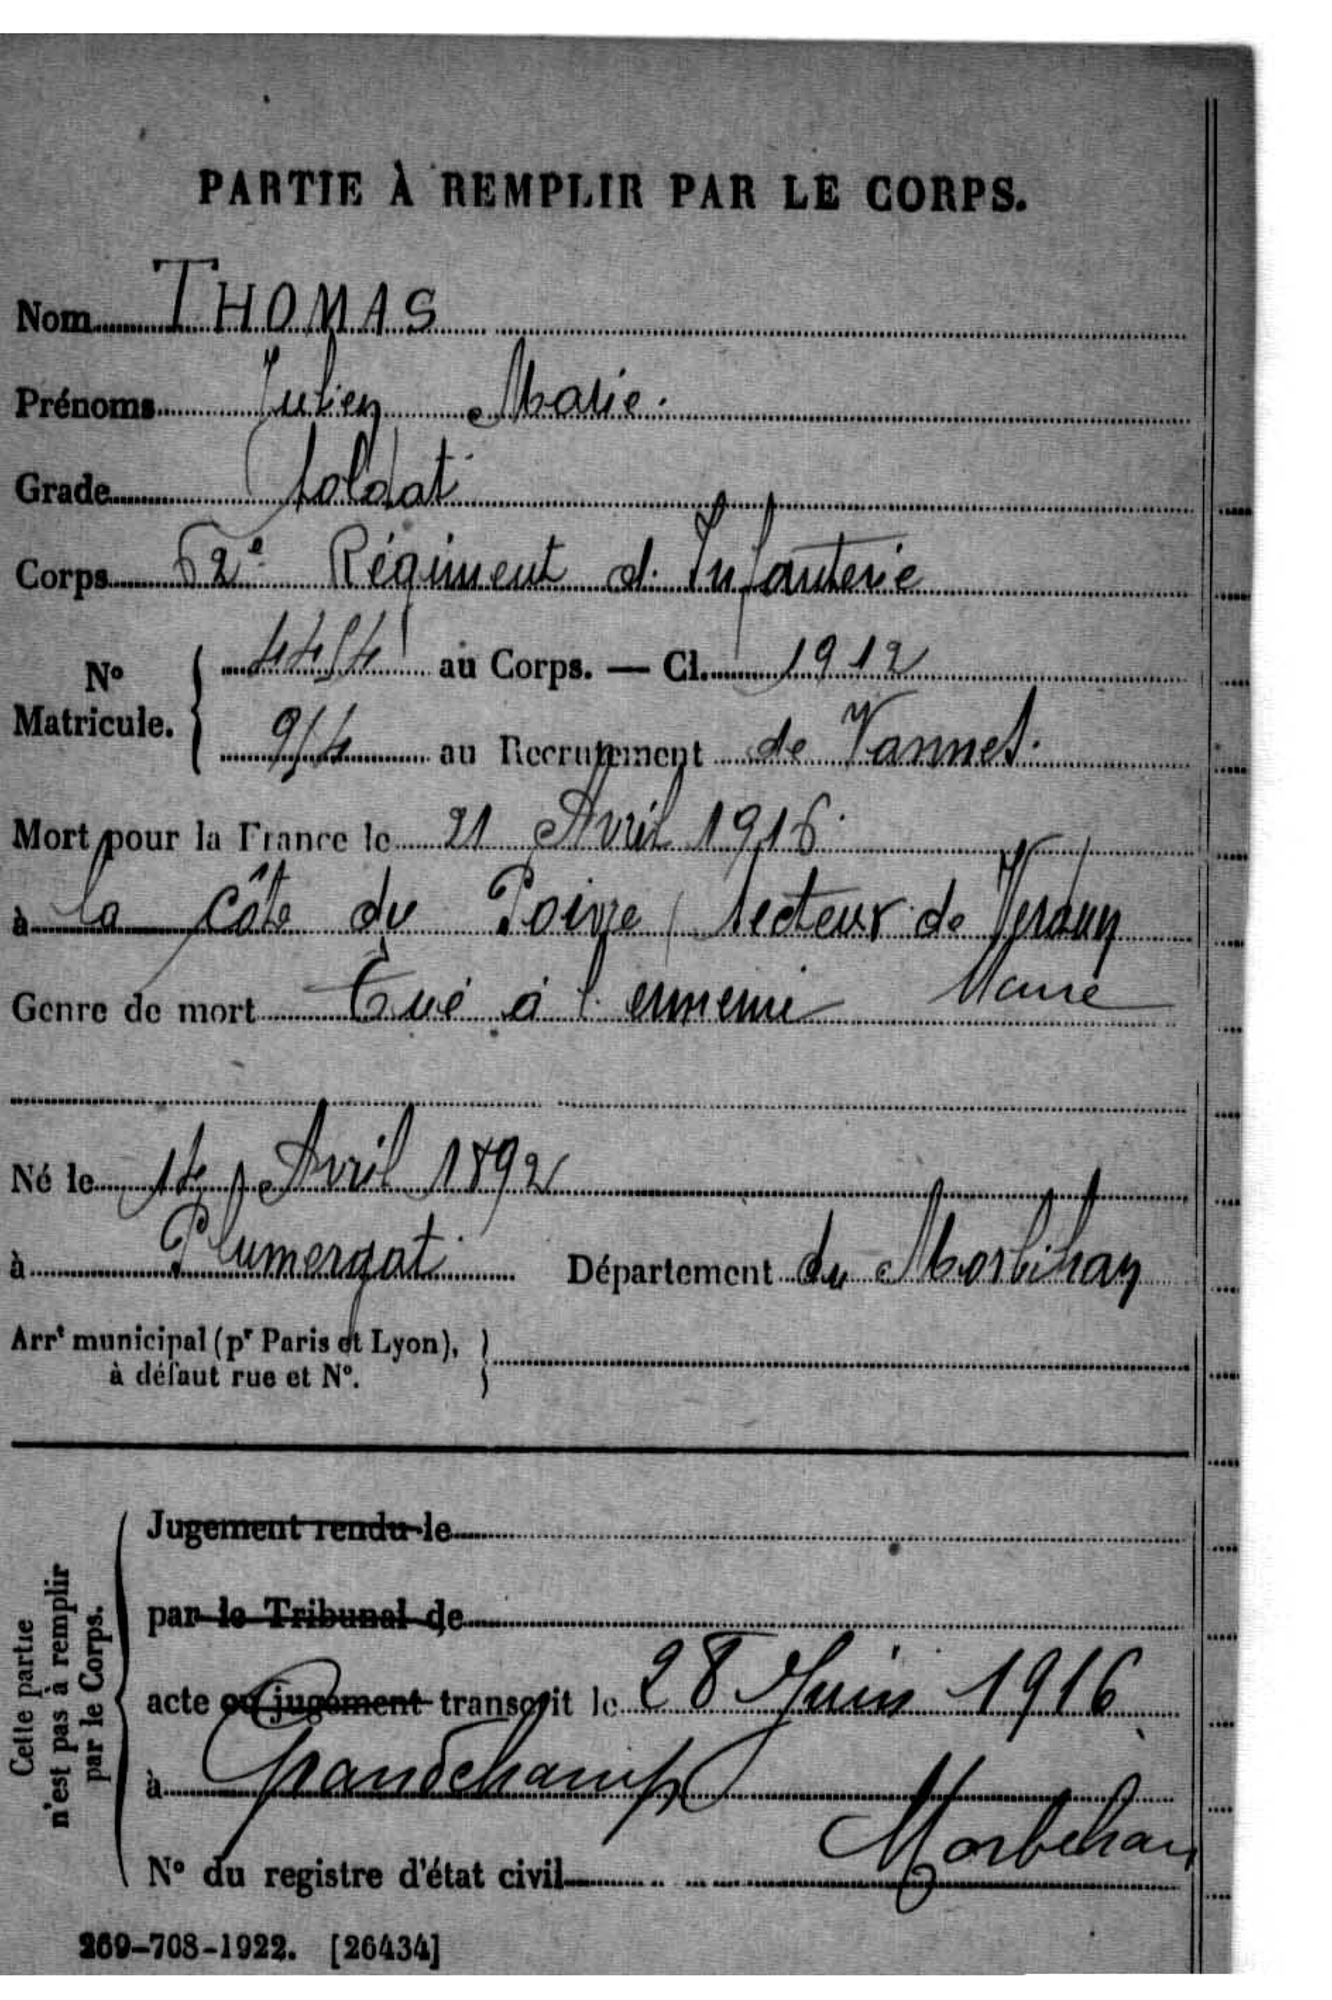 PARTIE À REMPLIR PAR LE CORPS.
Nom THOMAS
Prénoms Julien Marie.
Grade Soldat
Corps 62e Régiment d'Infanterie
No Matricule. { au Corps. — Cl. 1912
au Recrutement de Vannes.
Mort pour la France le 21 Avril 1916.
à la Côte du Poivre secteur de Verdun
Genre de mort Tué à l'ennemi Meuse
Né le 14 Avril 1892
à Plumergat Département du Morbihan
Arrt municipal (pr Paris et Lyon),
à défaut rue et No.
Cette partie
n'est pas à remplir
par le Corps.
Jugement rendu le
par le Tribunal de
acte ou jugement transcrit le 28 Juin 1916
à Grandchamp
Morbihan
No du registre d'état civil
269-708-1922. [26434]